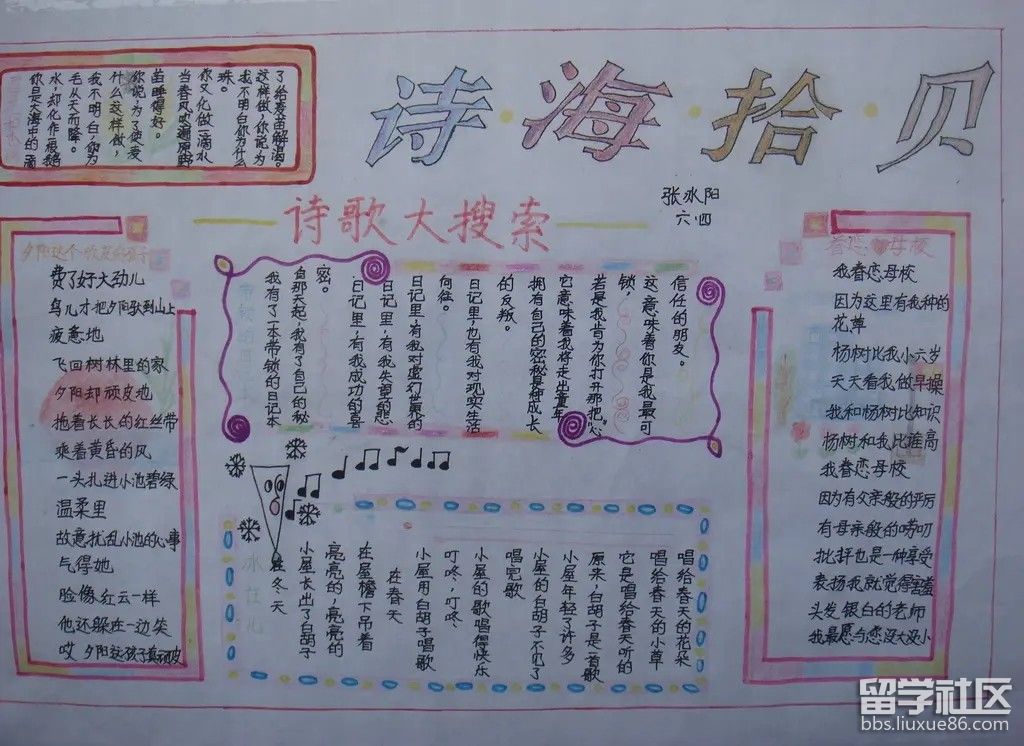 诗·海·拾·贝
张冰阳
六四
诗歌大搜索
你是大海中的一滴
水,却化作一根鹅
毛从天而降。
我不明白了你为
什么这样做,
你说,为了使麦
苗睡得好。
当春风吹遍原野
你又化做一滴水
珠。
我不明白你为什么
这样做,你说,为
了给麦苗解渴。
夕阳这个顽皮的孩子
费了好大劲儿
鸟儿才把夕阳驮到山上
疲惫地
飞回树林里的家
夕阳却顽皮地
拖着长长的红丝带
乘着黄昏的风
一头扎进小池碧绿
温柔里
故意扰乱小池的心事
气得她
脸像红云一样
他还躲在一边笑
哎 夕阳这孩子真顽皮
带锁的日记本
我有了一本带锁的日记本
自那天起,我有了自己的秘
密。
日记里,有我成功的喜
日记里,有我失望的愁
日记里,有我对虚幻世界的
向往。
日记里,也有我对现实生活
的反叛。
拥有自己的秘密是种成长
它意味着我将走出童年
若是我肯为你打开那把“心
锁,
这意味着你是我最可
信任的朋友。
在冬天
小屋长出了白胡子
亮亮的,亮亮的
在屋檐下吊着
在春天
小屋用白胡子唱歌
叮咚,叮咚、
小屋的歌唱得快乐
唱完歌
小屋的白胡子不见了
小屋年轻了许多
原来,白胡子是一首歌
它是唱给春天听的
唱给春天的小草
唱给春天的花朵
眷恋母校
我眷恋母校
因为这里有我种的
花草
杨树比我小六岁
天天看我做早操
我和杨树比知识
杨树和我比谁高
我眷恋母校
因为有父亲般的严厉
有母亲般的唠叨
批评也是一种享受
表扬我就觉得害羞
头发银白的老师
我最愿与您没大没小
留学社区
bbs.liuxue86.com